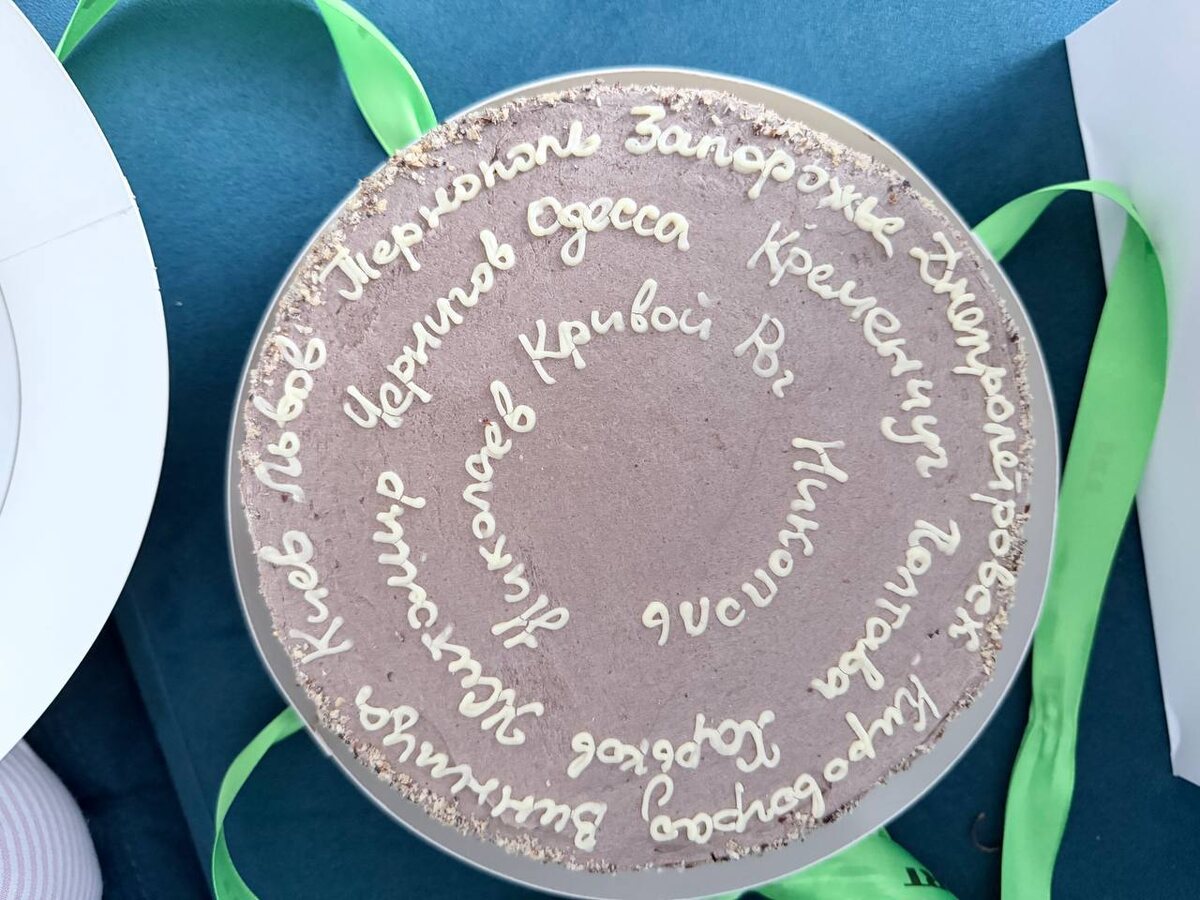 Тернополь
Запорожье
Днепропетровск
Кировоград
Винница
Киев
Львов
Чернигов
Одесса
Кременчуг
Полтава
Харьков
Житомир
Николаев
Кривой
Никополь